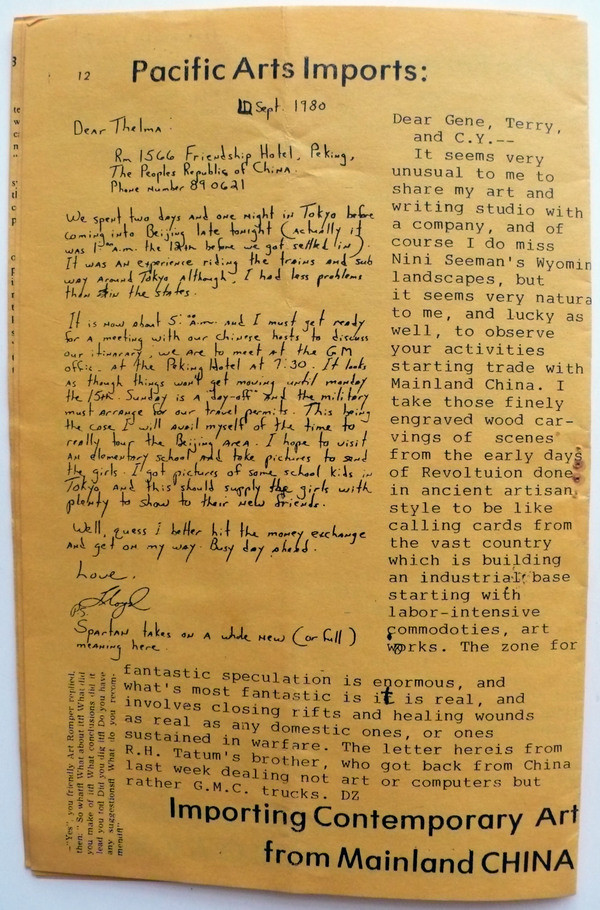 12
Pacific Arts Imports:
10 Sept. 1980
Dear Thelma.
Rm 1566 Friendship Hotel, Peking,
The Peoples Republic of China.
Phone Number 890621
We spent two days and one night in Tokyo before
coming into Beijing late tonight (actually it
was 1 a.m. the 12th before we got settled in).
It was an experience riding the trains and sub
way around Tokyo although, I had less problems
than in the states.
It is now about 5: a.m. and I must get ready
for a meeting with our chinese hosts to discuss
our itinarary. we are to meet at the GM
offic. at the Peking Hotel at 7:30. It looks
as though things won't get moving until monday
the 15th. Sunday is a day-off and the military
must arrange for our travel permits. This being
the case I will avail myself of the time to
really tour the Beijing area. I hope to visit
an elementary school and take pictures to send
the girls. I got pictures of some school kids in
Tokyo and this should supply the girls with
plenty to show to their new friends.
Well, guess i better hit the money exchange
and get on my way. Busy day ahead.
Love,
Lloyd
P.S.
Spartan takes on a whole new (or full)
meaning here.
Dear Gene, Terry,
and C.Y.--
It seems very
unusual to me to
share my art and
writing studio with
a company, and of
course I do miss
Nini Seeman's Wyomin
landscapes, but
it seems very natura
to me, and lucky as
well, to observe
your activities
starting trade with
Mainland China. I
take those finely
engraved wood car-
vings of scenes
from the early days
of Revoltuion done
in ancient artisan
style to be like
calling cards from
the vast country
which is building
an industrial base
starting with
labor-intensive
commodoties, art
works. The zone for
fantastic speculation is enormous, and
what's most fantastic is it is real, and
involves closing rifts and healing wounds
as real as any domestic ones, or ones
sustained in warfare. The letter hereis from
R.H. Tatum's brother, who got back from China
last week dealing not art or computers but
rather G.M.C. trucks. DZ
—"Yes", you friendly Art Romper replied,
then: "So what!! What about it!! What did
you make of it!! What conclusions did it
lead you to!! Did you dig it!! Do you have
any suggestions!! What do you recom-
mend!!"
Importing Contemporary Art
from Mainland CHINA